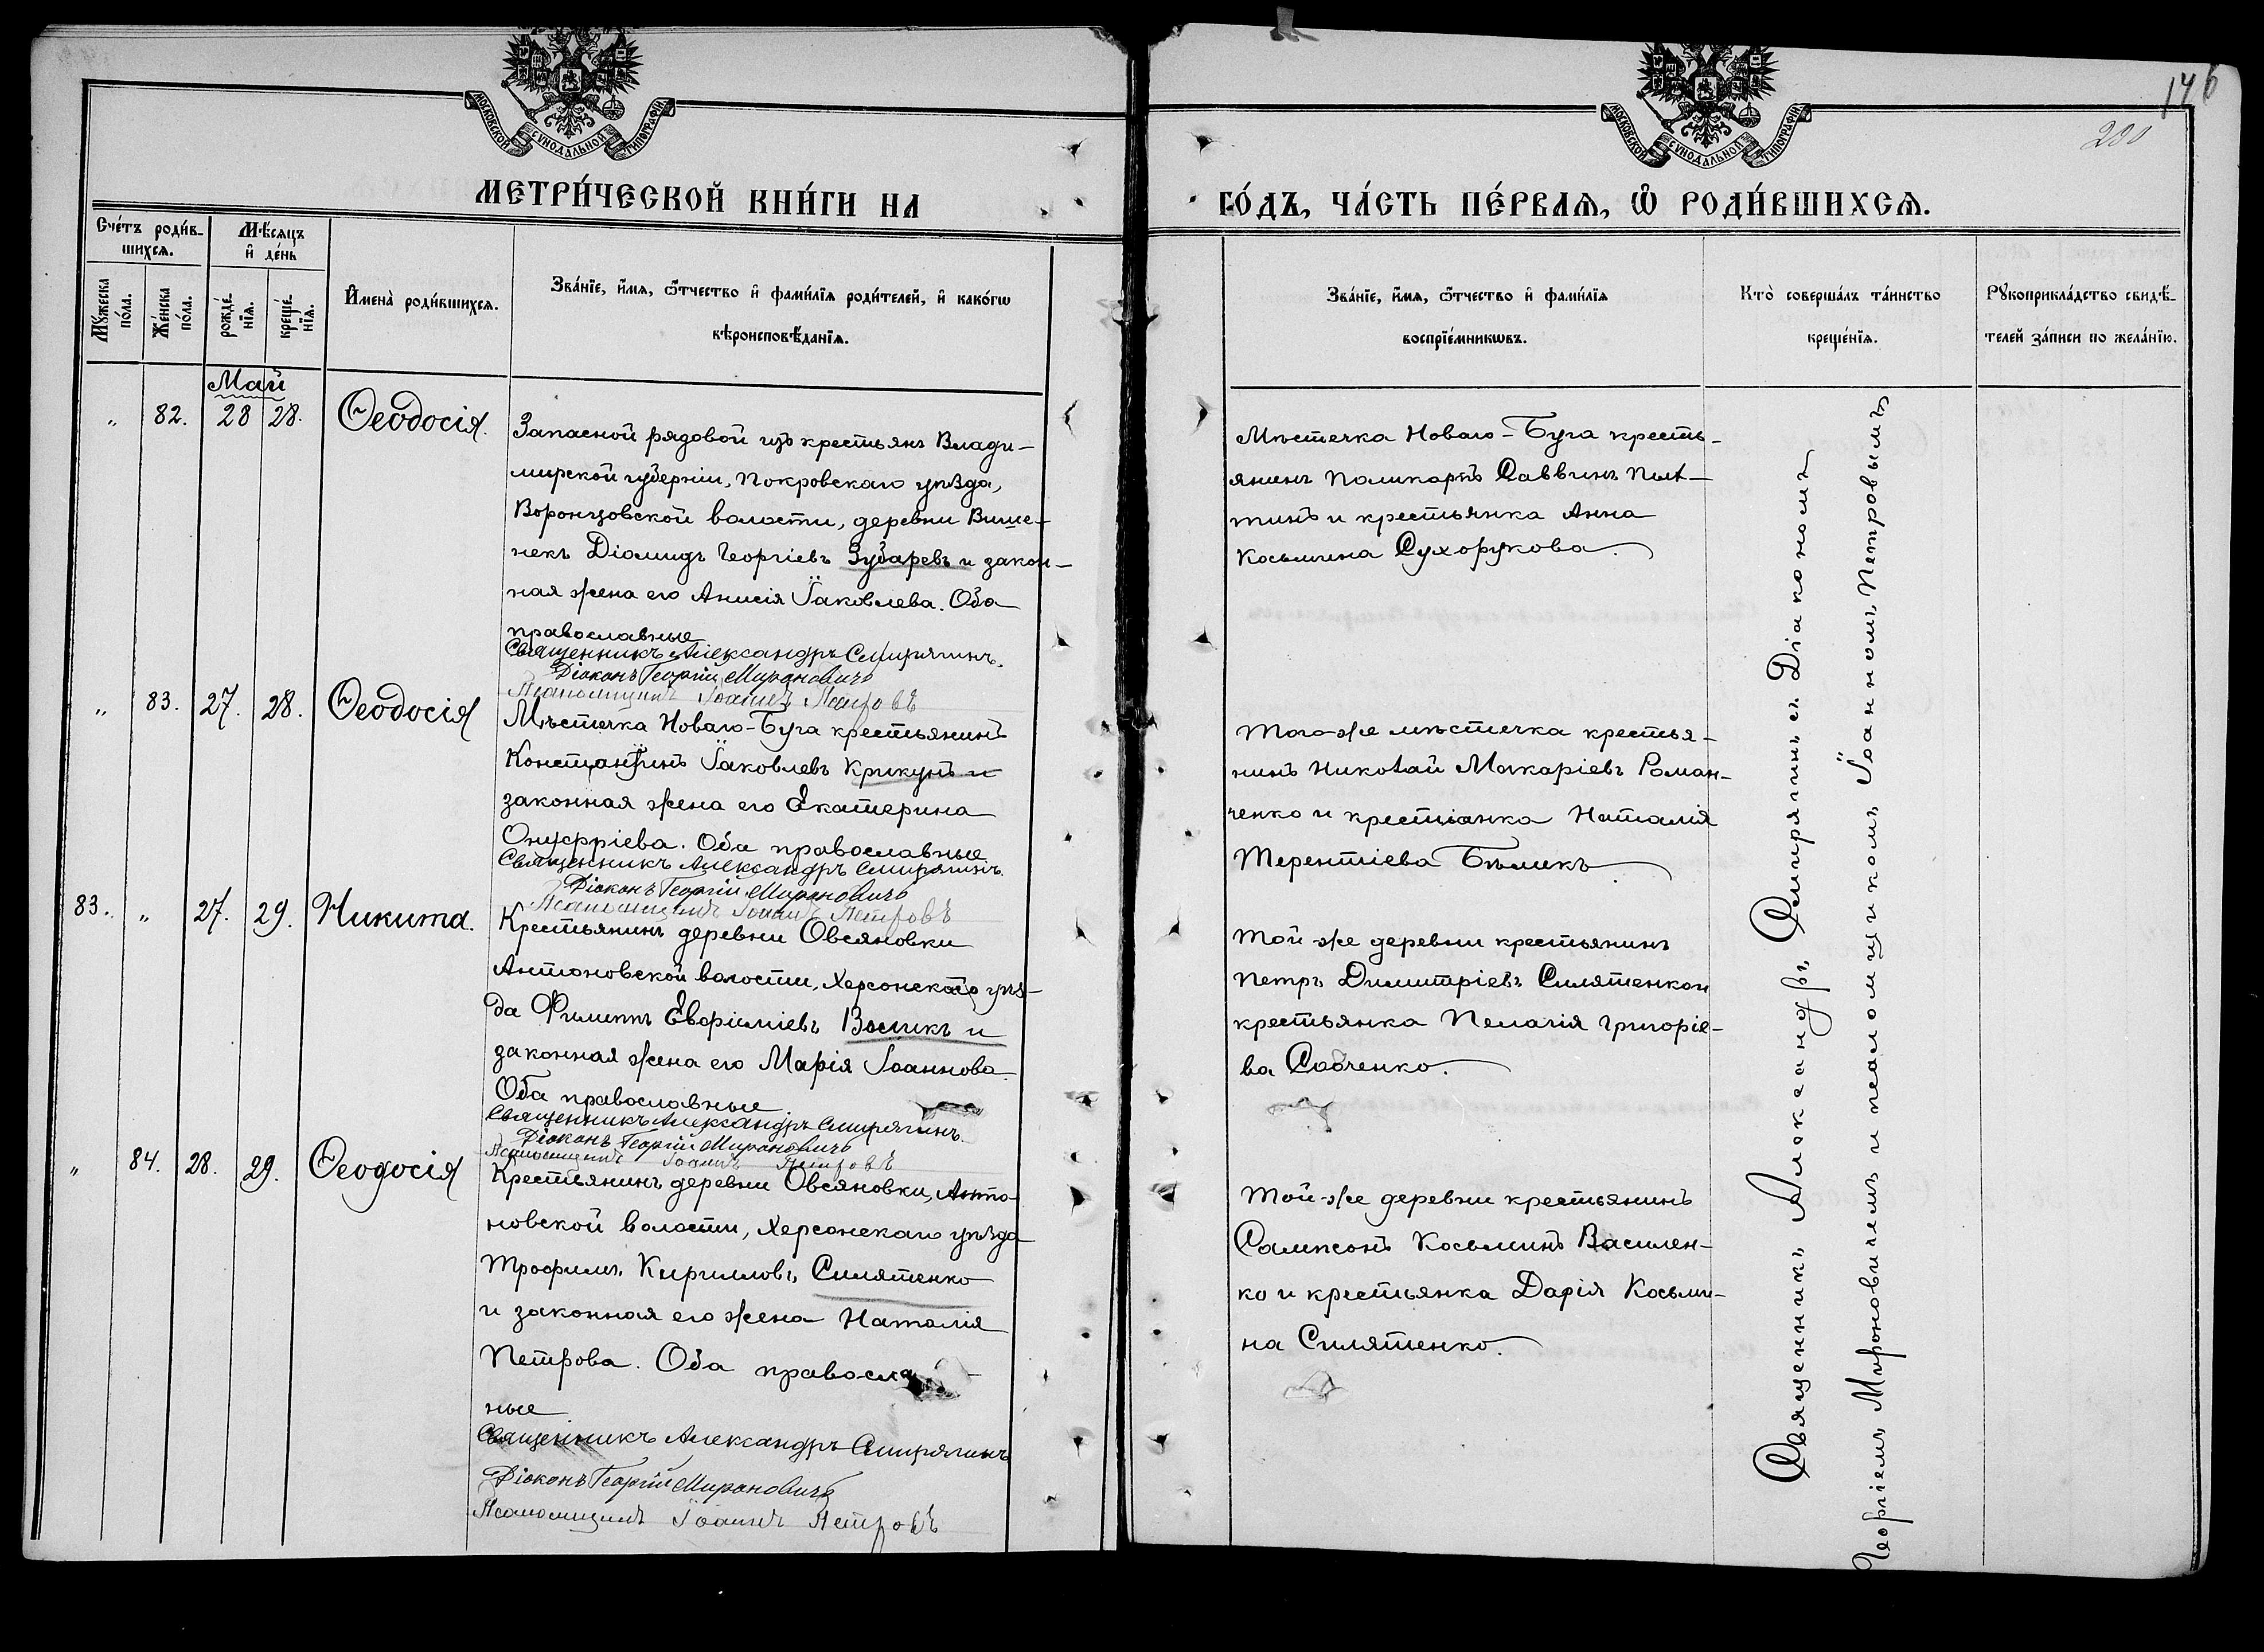 МОСКОВСКОЙ СѴНОДАЛЬНОЙ ТИПОГРАФІИ
МЕТРИ́ЧЕСКОЙ КНИ́ГИ НА
Сче́тъ роди́в-
шихсѧ.
Мѣ́сѧцъ
и҆ де́нь
Мꙋ́жеска
по́ла.
Же́нска
по́ла.
рожде́-
нїѧ.
креще́-
нїѧ.
И҆мена̀ роди́вшихсѧ.
Зва́нїе, и҆́мѧ, ѻ҆́тчество и҆ фами́лїѧ роди́телей, и҆ како́гѡ
вѣроисповѣ́данїѧ.
Май
„ 82. 28 28. Ѳеодосія.
Запасной рядовой изъ крестьянъ Влади-
мирской губерніи, Покровскаго уѣзда,
Воронцовской волости, деревни Више-
некъ Діомидъ Георгіевъ Зубаревъ и закон-
ная жена его Анисія Іаковлева. Оба
православные
Священникъ Александръ Смирягинъ.
Діаконъ Георгій Мироновичъ
Псаломщикъ Іоаннъ Петровъ
„ 83. 27. 28. Ѳеодосія
Мѣстечка Новаго-Буга крестьянинъ
Константинъ Іаковлевъ Крикунъ и
законная жена его Екатерина
Онуфріева. Оба православные.
Священникъ Александръ Смирягинъ.
Діаконъ Георгій Мироновичъ
Псаломщикъ Іоаннъ Петровъ
83. „ 27. 29. Никита.
Крестьянинъ деревни Овсяновки
Антоновской волости, Херсонскаго уѣз-
да Филиппъ Евфиміевъ Восикъ и
законная жена его Марія Іоаннова.
Оба православные
Священникъ Александръ Смирягинъ.
Діаконъ Георгій Мироновичъ
Псаломщикъ Іоаннъ Петровъ
„ 84. 28. 29. Ѳеодосія
Крестьянинъ деревни Овсяновки, Анто-
новской волости, Херсонскаго уѣзда
Трофимъ Кирилловъ Силятенко
и законная его жена Наталія
Петрова. Оба правосла
ные
Священникъ Александръ Смирягинъ
Діаконъ Георгій Мироновичъ
Псаломщикъ Іоаннъ Петровъ
146
200
МОСКОВСКОЙ СѴНОДАЛЬНОЙ ТИПОГРАФІИ
ГО́ДЪ, ЧА́СТЬ ПЕ́РВАѦ, Ѡ҆ РОДИ́ВШИХСѦ.
Зва́нїе, и҆́мѧ, ѻ҆́тчество и҆ фами́лїѧ
воспрїе́мникѡвъ.
Кто̀ соверша́лъ та́инство
креще́нїѧ.
Рꙋкоприкла́дство свидѣ́-
телей за́писи по жела́нїю.
Мѣстечка Новаго-Буга кресть-
янинъ Поликарпъ Саввинъ
и крестьянка Анна
Косьмина Сухорукова.
Того-же мѣстечка крестья-
нинъ Николай Макаріевъ Роман-
ченко и крестьянка Наталія
Терентіева Бѣликъ.
Той же деревни крестьянинъ
Петръ Димитріевъ Силятенко и
крестьянка Пелагія Григоріе-
ва Собченко.
Той-же деревни крестьянинъ
Сампсонъ Косьминъ Василен-
ко и крестьянка Дарія Косьми-
на Силятенко.
Священникъ Александръ Смирягинъ съ Діакономъ
Георгіемъ Мироновичемъ и псаломщикомъ Іоанномъ Петровымъ